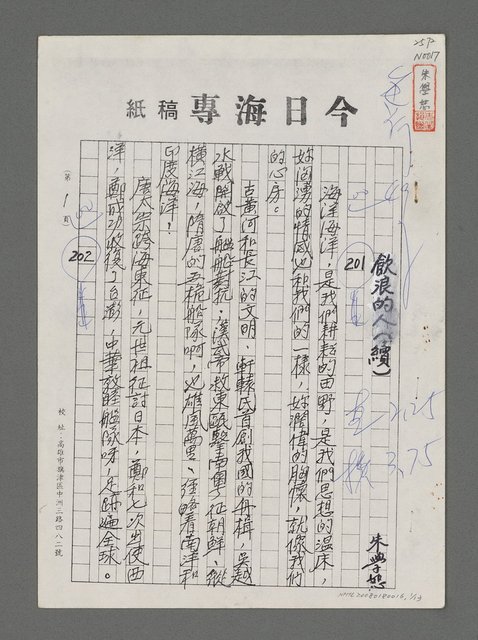 25P
N0017
朱學恕
今日海專稿紙
飲浪的人(續)
朱學恕
直2.25
橫3.75
201
海洋海洋,是我們耕耘的田野,是我們思想的溫床,
妳洶湧的情感也和我們的一樣,妳潤偉的胸懷,就像我們
的心房。
古黃河和長江的文明,軒轅氏首創我國的舟楫,吳越
水戰開啟了艦艇對抗,漢武帝救東甌擊南粵了征朝鮮、縱
橫江海,隋唐的五桅船隊啊,也雄風萬里、經略着南洋和
印度海洋!
唐太宗跨海東征,元世祖征討日本,鄭和七次出使西
洋,鄭成功收復了台澎,中華敦睦艦隊呀,足跡遍全球。
202
(第1頁)
校址:高雄市旗津區中洲三路四八二號
NMTL20080180016,1/13